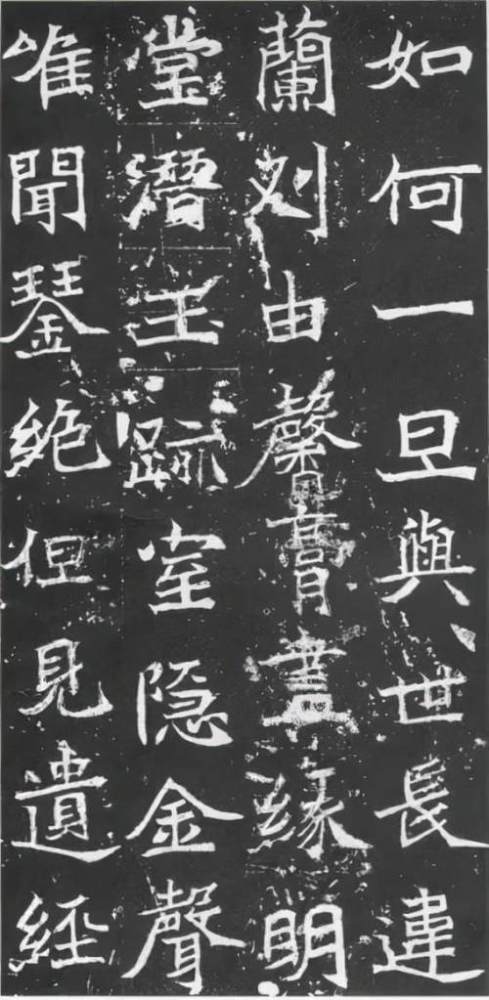 如何一旦與世長違
蘭刈由馨膏盡緣明
堂潛玉跡室隐金聲
唯聞琴絕但見遺經